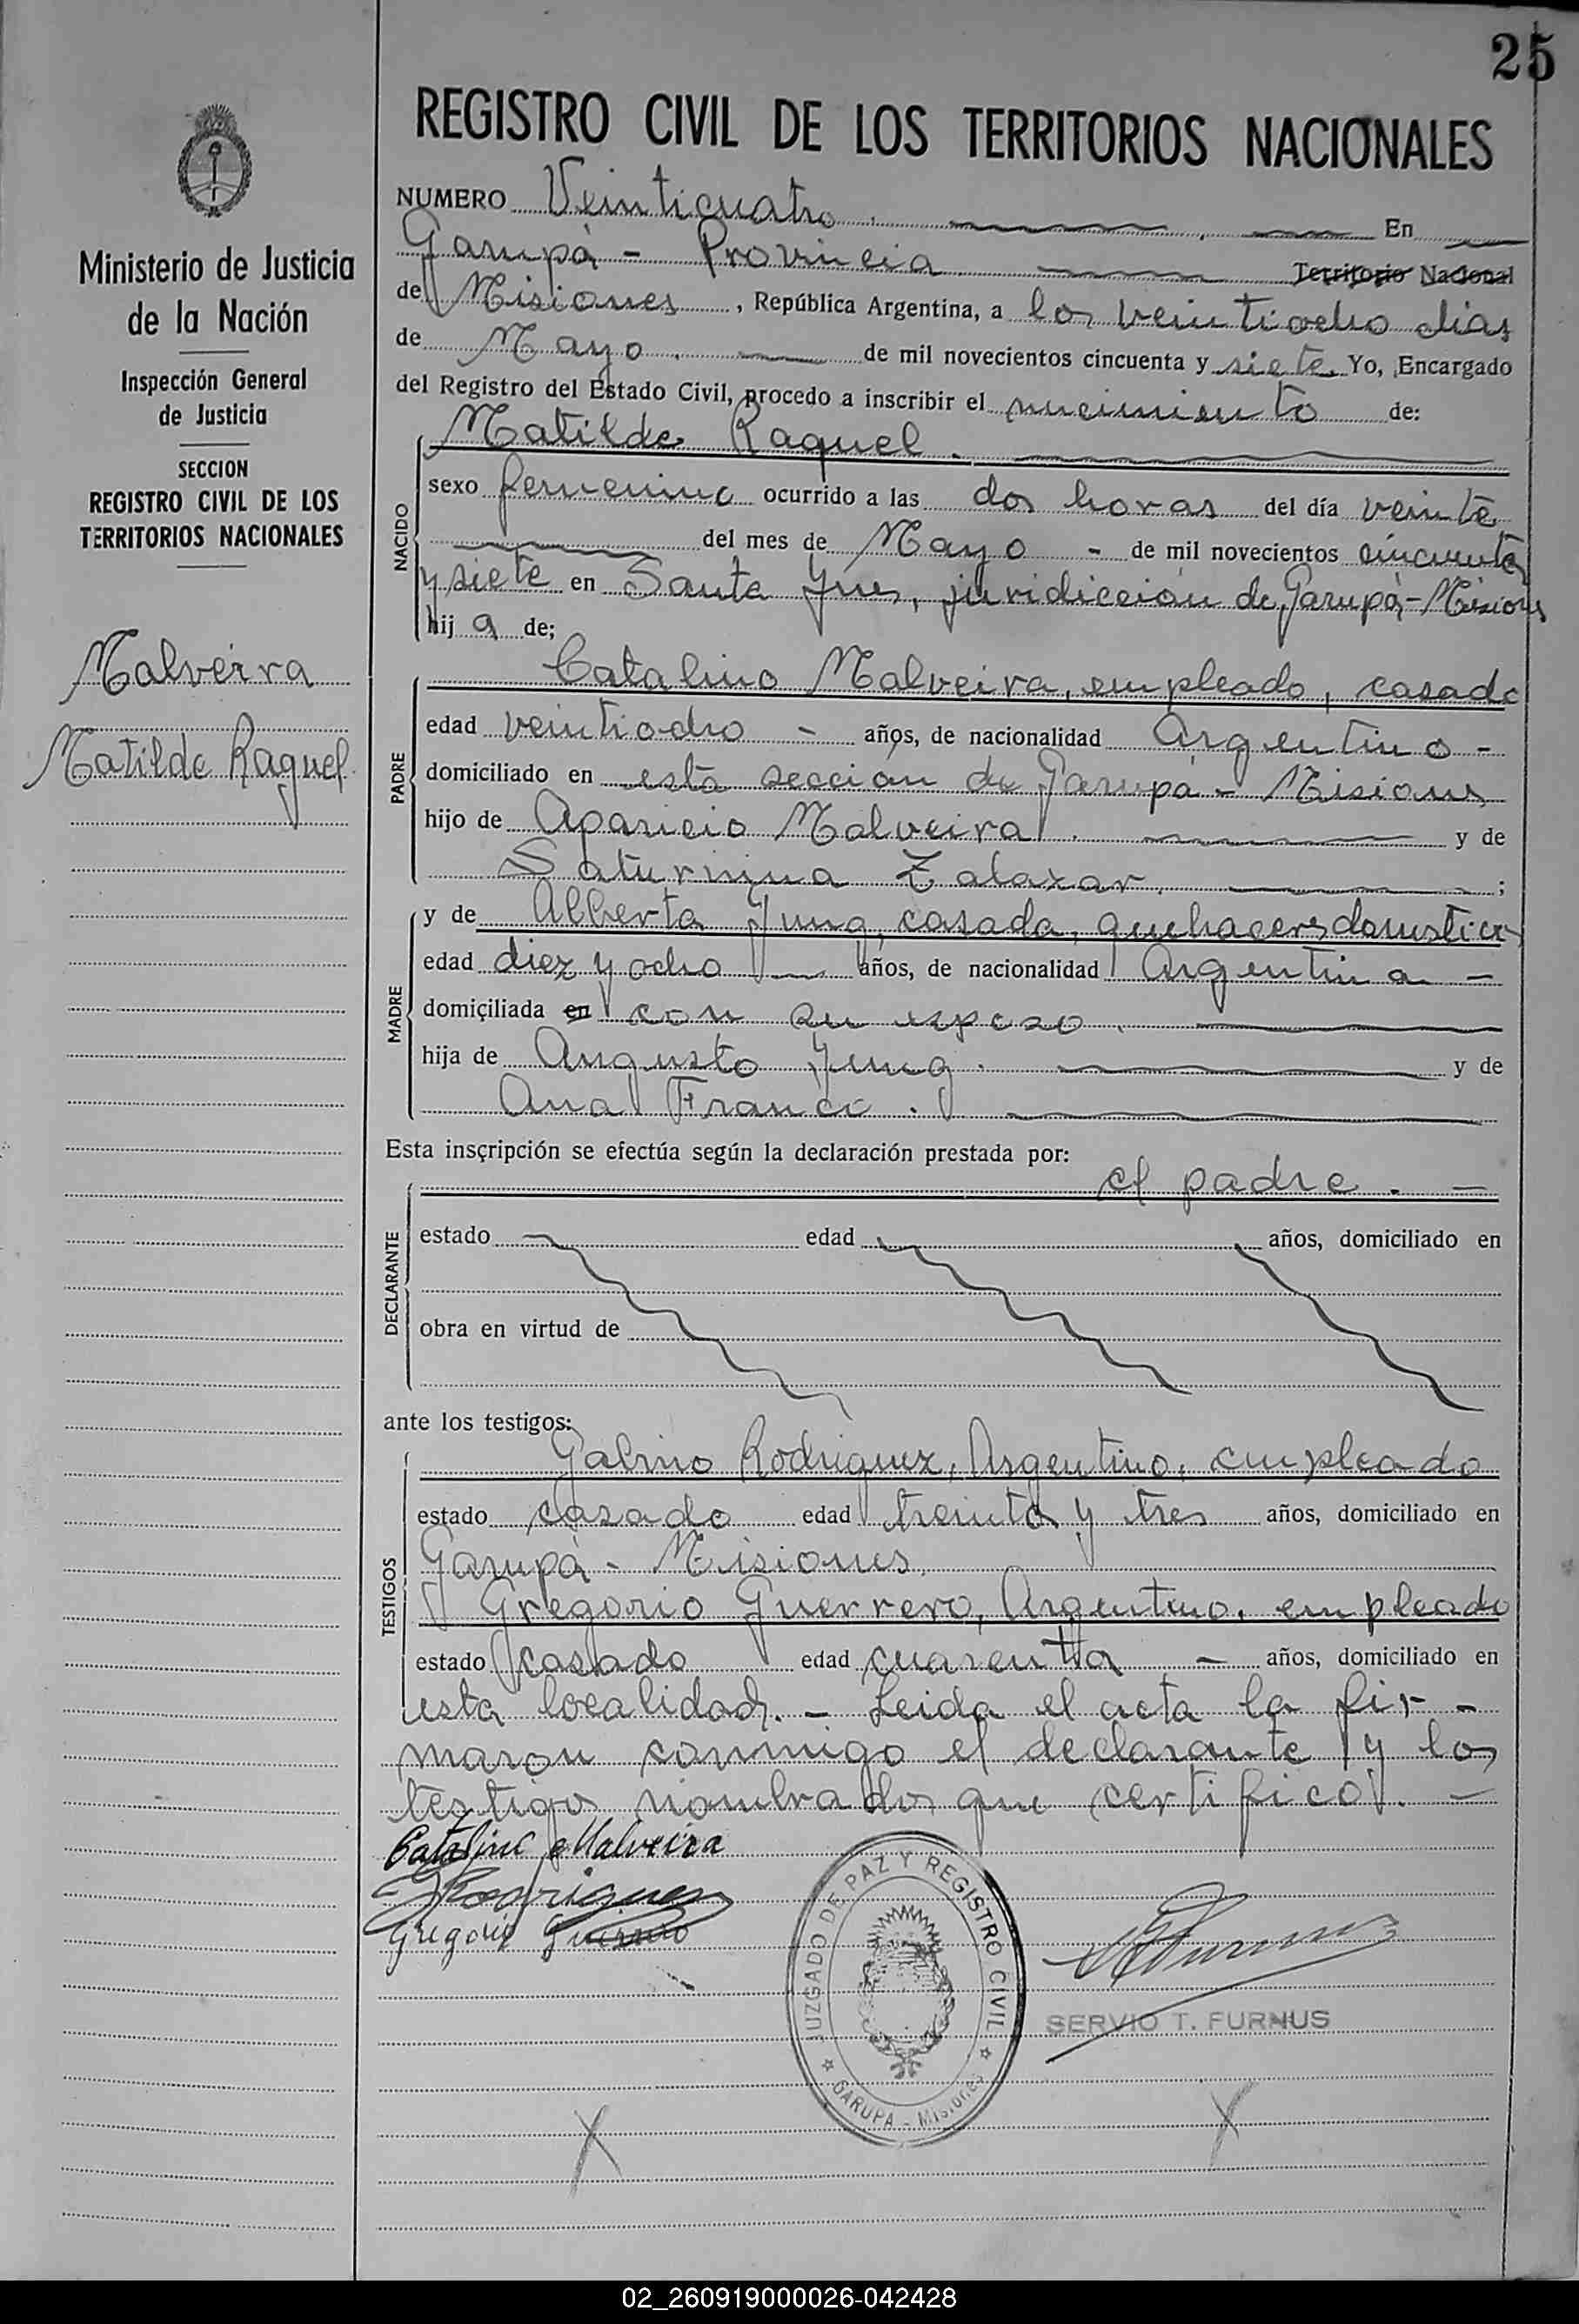 25
REGISTRO CIVIL DE LOS TERRITORIOS NACIONALES
Ministerio de Justicia
de la Nación
Inspección General
de Justicia
SECCION
REGISTRO CIVIL DE LOS
TERRITORIOS NACIONALES
Malveira
Matilde Raquel
NUMERO Veinticuatro. En
Garupá - Provincia Territorio Nacional
de Misiones, República Argentina, a los veintiocho días
de Mayo. de mil novecientos cincuenta y siete. Yo, Encargado
del Registro del Estado Civil, procedo a inscribir el nacimiento de:
NACIDO
Matilde Raquel.
sexo femenino ocurrido a las dos horas del día veinte
del mes de Mayo - de mil novecientos cincuenta
y siete en Santa Ynes, juridicción de Garupá - Misiones
hij a de;
PADRE
Catalino Malveira, empleado, casado
edad veintiocho - años, de nacionalidad Argentino -
domiciliado en esta sección de Garupá - Misiones
hijo de Aparicio Malveira. y de
Saturnina Zalazar. ;
MADRE
y de Alberta Yung, casada, quehaceres domesticos
edad diez y ocho años, de nacionalidad Argentina -
domiciliada en con su esposo.
hija de Augusto Yung. y de
Ana Franco.
Esta inscripción se efectúa según la declaración prestada por:
el padre. -
DECLARANTE
estado edad años, domiciliado en
obra en virtud de
ante los testigos:
TESTIGOS
Galvino Rodriguez, Argentino, empleado
estado casado edad treinta y tres años, domiciliado en
Garupá - Misiones.
Gregorio Guerrero, Argentino, empleado
estado casado edad cuarenta - años, domiciliado en
esta localidad. - Leida el acta la fir-
maron conmigo el declarante y los
testigos nombrados que certifico. -
Catalino Malveira
Rodriguez
Gregorio Guerrero
JUZGADO DE PAZ Y REGISTRO CIVIL
GARUPA - Misiones
SERVIO T. FURNUS
02_260919000026-042428